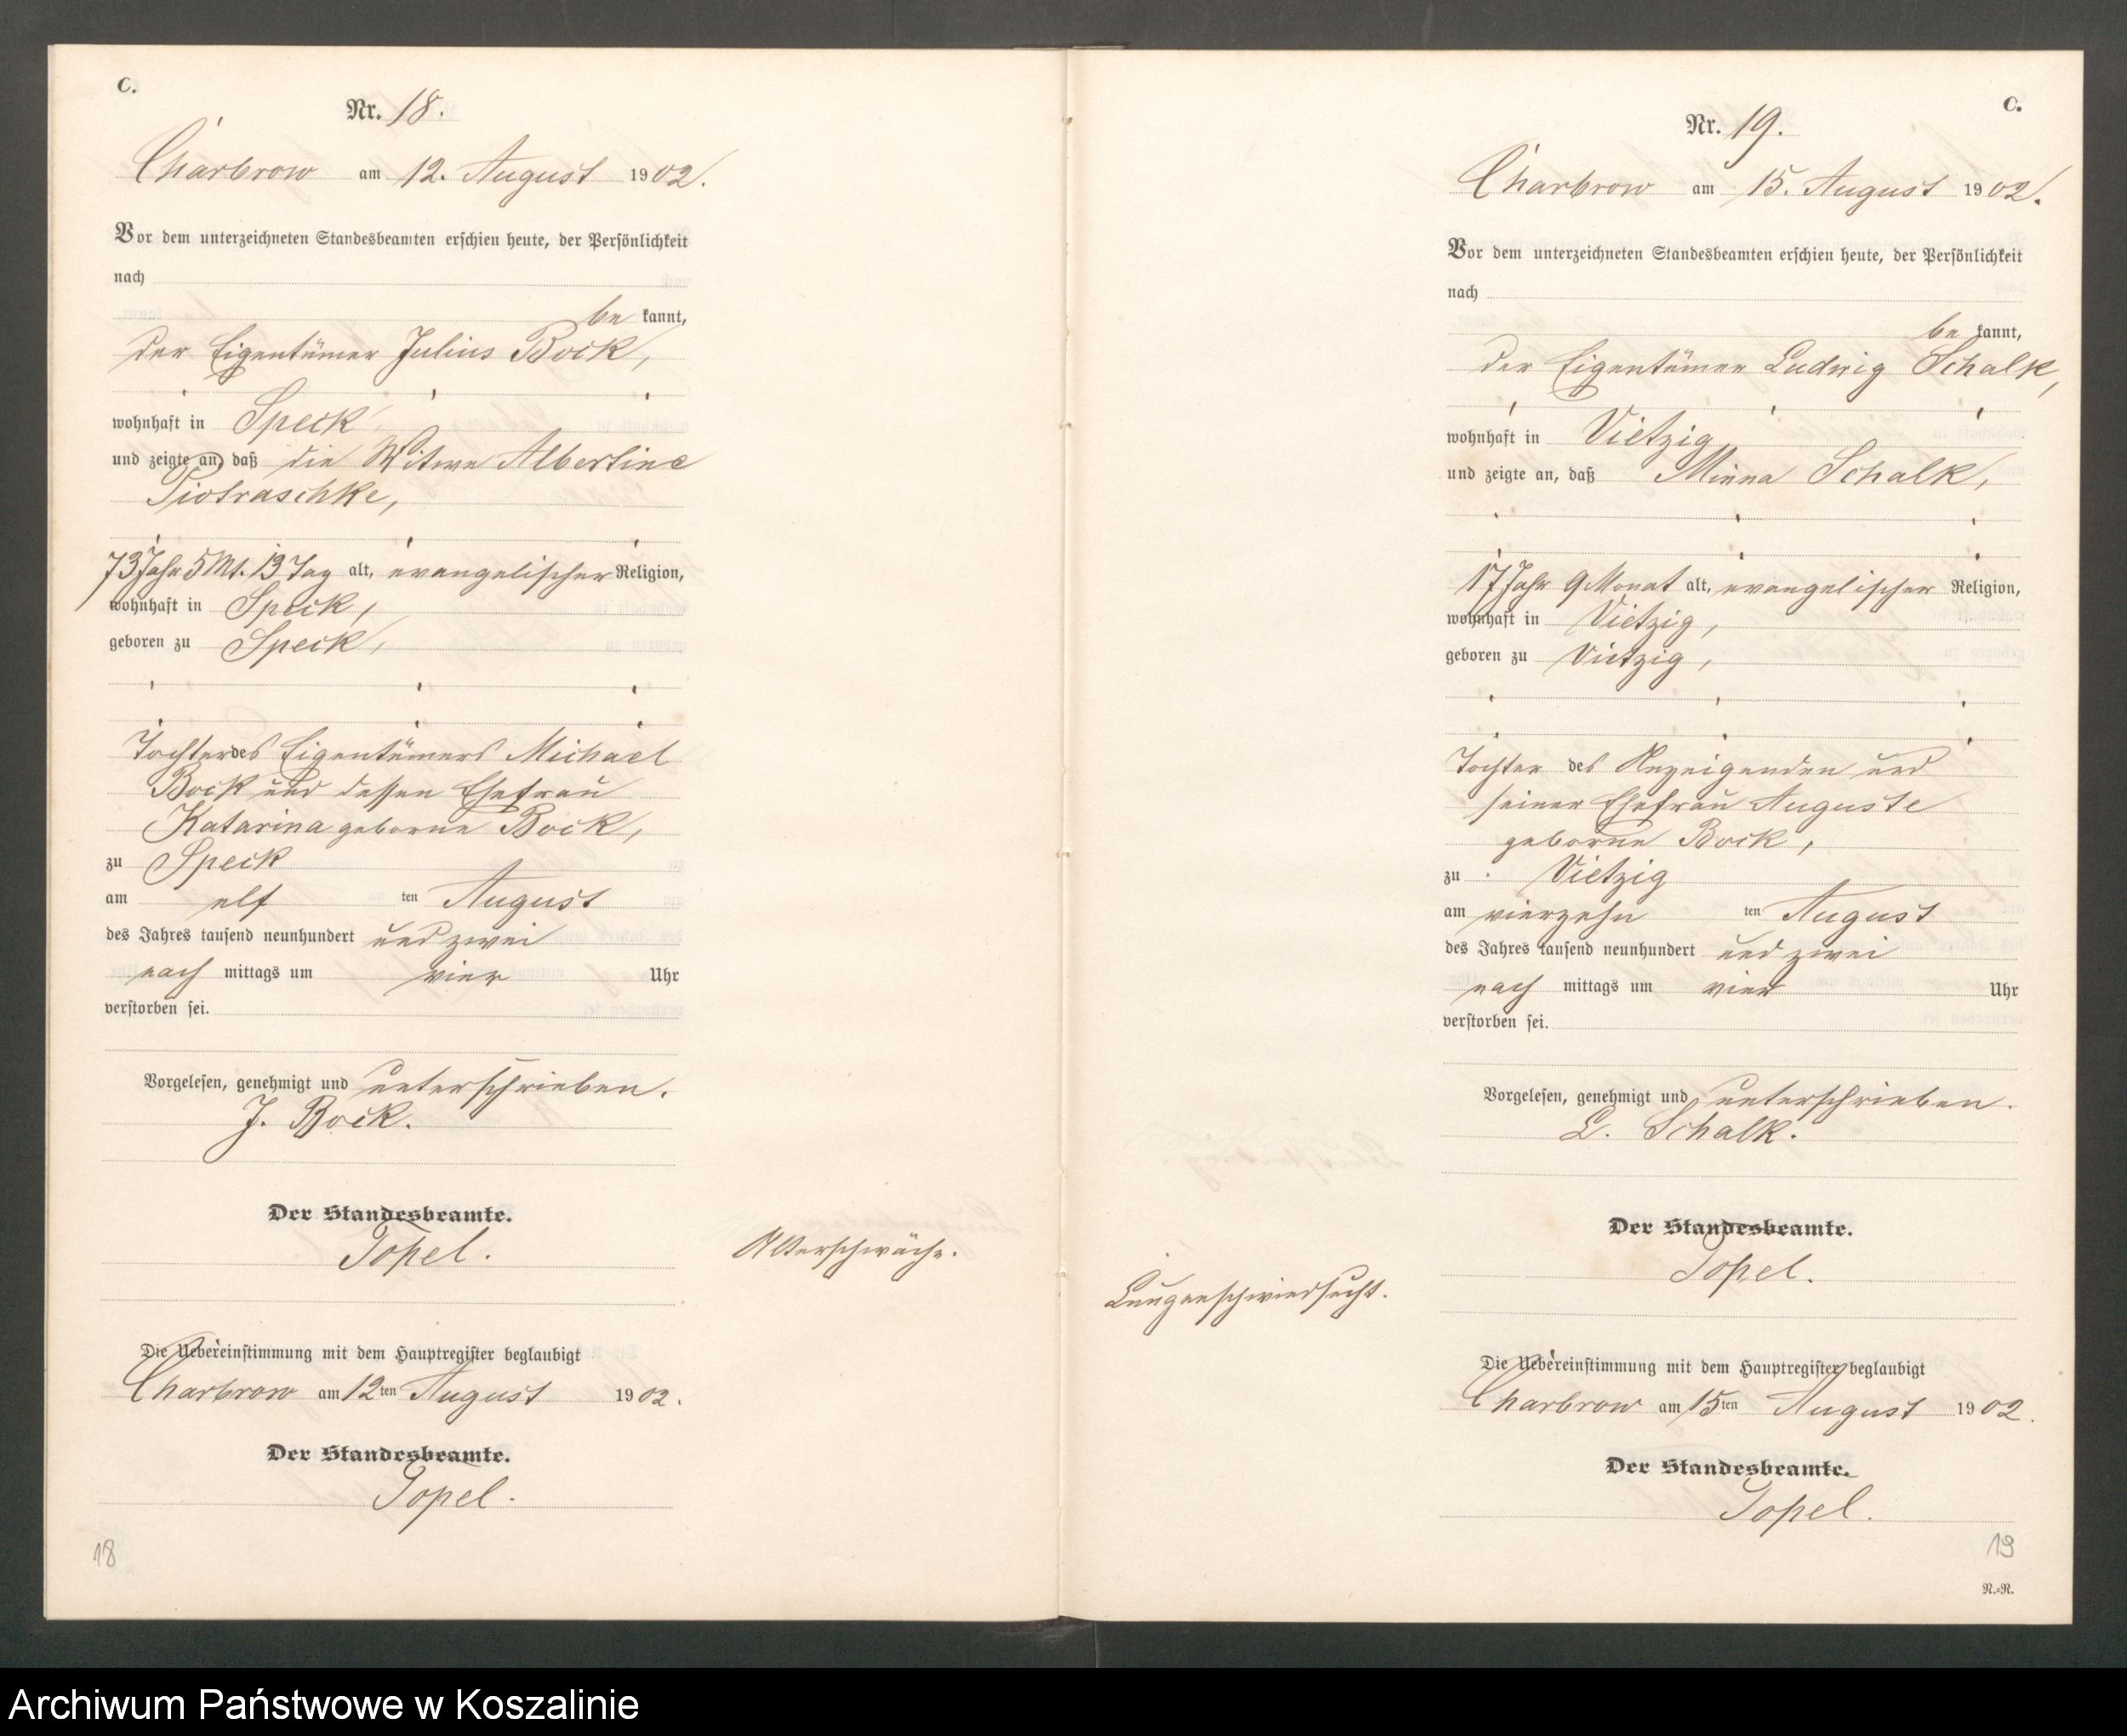 C.
Nr. 18.
Charbrow am 12. August 1902.
Vor dem unterzeichneten Standesbeamten erschien heute, der Persönlichkeit
nach
be kannt,
der Eigentümer Julius Bock,
wohnhaft in Speck
und zeigte an, daß die Witwe Albertine
Piotraschke,
73 Jahr 5 Mt. 13 Tag alt, evangelischer Religion,
wohnhaft in Speck,
geboren zu Speck,
Tochter des Eigentümers Michael
Bock und dessen Ehefrau
Katarina geborne Bock,
zu Speck
am elf ten August
des Jahres tausend neunhundert und zwei
nach mittags um vier Uhr
verstorben sei.
Vorgelesen, genehmigt und unterschrieben.
J. Bock.
Der Standesbeamte.
Topel.
Alterschwäche.
Die Uebereinstimmung mit dem Hauptregister beglaubigt
Charbrow am 12ten August 1902.
Der Standesbeamte.
Topel.
18
C.
Nr. 19.
Charbrow am 15. August 1902.
Vor dem unterzeichneten Standesbeamten erschien heute, der Persönlichkeit
nach
be kannt,
der Eigentümer Ludwig Schalk,
wohnhaft in Vietzig
und zeigte an, daß Minna Schalk,
17 Jahr 9 Monat alt, evangelischer Religion,
wohnhaft in Vietzig,
geboren zu Vietzig,
Tochter des Anzeigenden und
seiner Ehefrau Auguste
geborne Bock,
zu Vietzig
am vierzehn ten August
des Jahres tausend neunhundert und zwei
nach mittags um vier Uhr
verstorben sei.
Vorgelesen, genehmigt und unterschrieben.
L. Schalk.
Der Standesbeamte.
Topel.
Lungenschwindsucht.
Die Uebereinstimmung mit dem Hauptregister beglaubigt
Charbrow am 15ten August 1902.
Der Standesbeamte.
Topel.
19
N.=R.
Archiwum Państwowe w Koszalinie